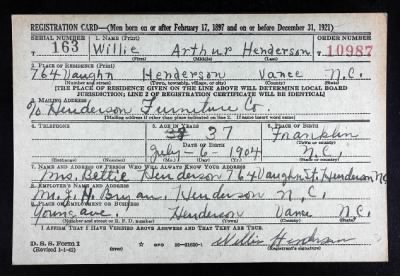 REGISTRATION CARD—(Men born on or after February 17, 1897 and on or before December 31, 1921)
SERIAL NUMBER 1. NAME (Print) ORDER NUMBER
T 163 Willie Arthur Henderson T 10987
(First) (Middle) (Last)
2. PLACE OF RESIDENCE (Print)
764 Vaughn Henderson Vance N.C.
(Number and street) (Town, township, village, or city) (County) (State)
[THE PLACE OF RESIDENCE GIVEN ON THE LINE ABOVE WILL DETERMINE LOCAL BOARD
JURISDICTION; LINE 2 OF REGISTRATION CERTIFICATE WILL BE IDENTICAL]
3. MAILING ADDRESS
% Henderson Furniture Co.
[Mailing address if other than place indicated on line 2. If same insert word same]
4. TELEPHONE 5. AGE IN YEARS 6. PLACE OF BIRTH
37 Franklin
DATE OF BIRTH (Town or county)
July - 6 - 1904 N.C.
(Exchange) (Number) (Mo.) (Day) (Yr.) (State or country)
7. NAME AND ADDRESS OF PERSON WHO WILL ALWAYS KNOW YOUR ADDRESS
Mrs. Bettie Henderson 764 Vaughn St. Henderson N.C.
8. EMPLOYER'S NAME AND ADDRESS
Mr. J. H. Bryan, Henderson N.C.
9. PLACE OF EMPLOYMENT OR BUSINESS
Young ave. Henderson Vance N.C.
(Number and street or R. F. D. number) (Town) (County) (State)
I AFFIRM THAT I HAVE VERIFIED ABOVE ANSWERS AND THAT THEY ARE TRUE.
D. S. S. Form 1
(Revised 1-1-42) (over) Willie Henderson